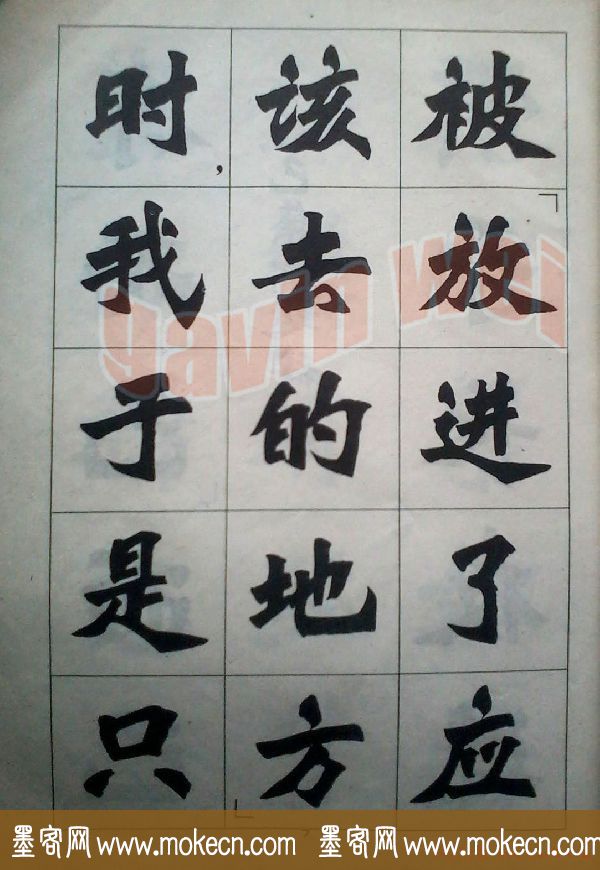 被「放进了应
该去的地方」，
时，我于是只
gavin wei
墨客网 www.mokecn.com 墨客网 www.mokecn.com